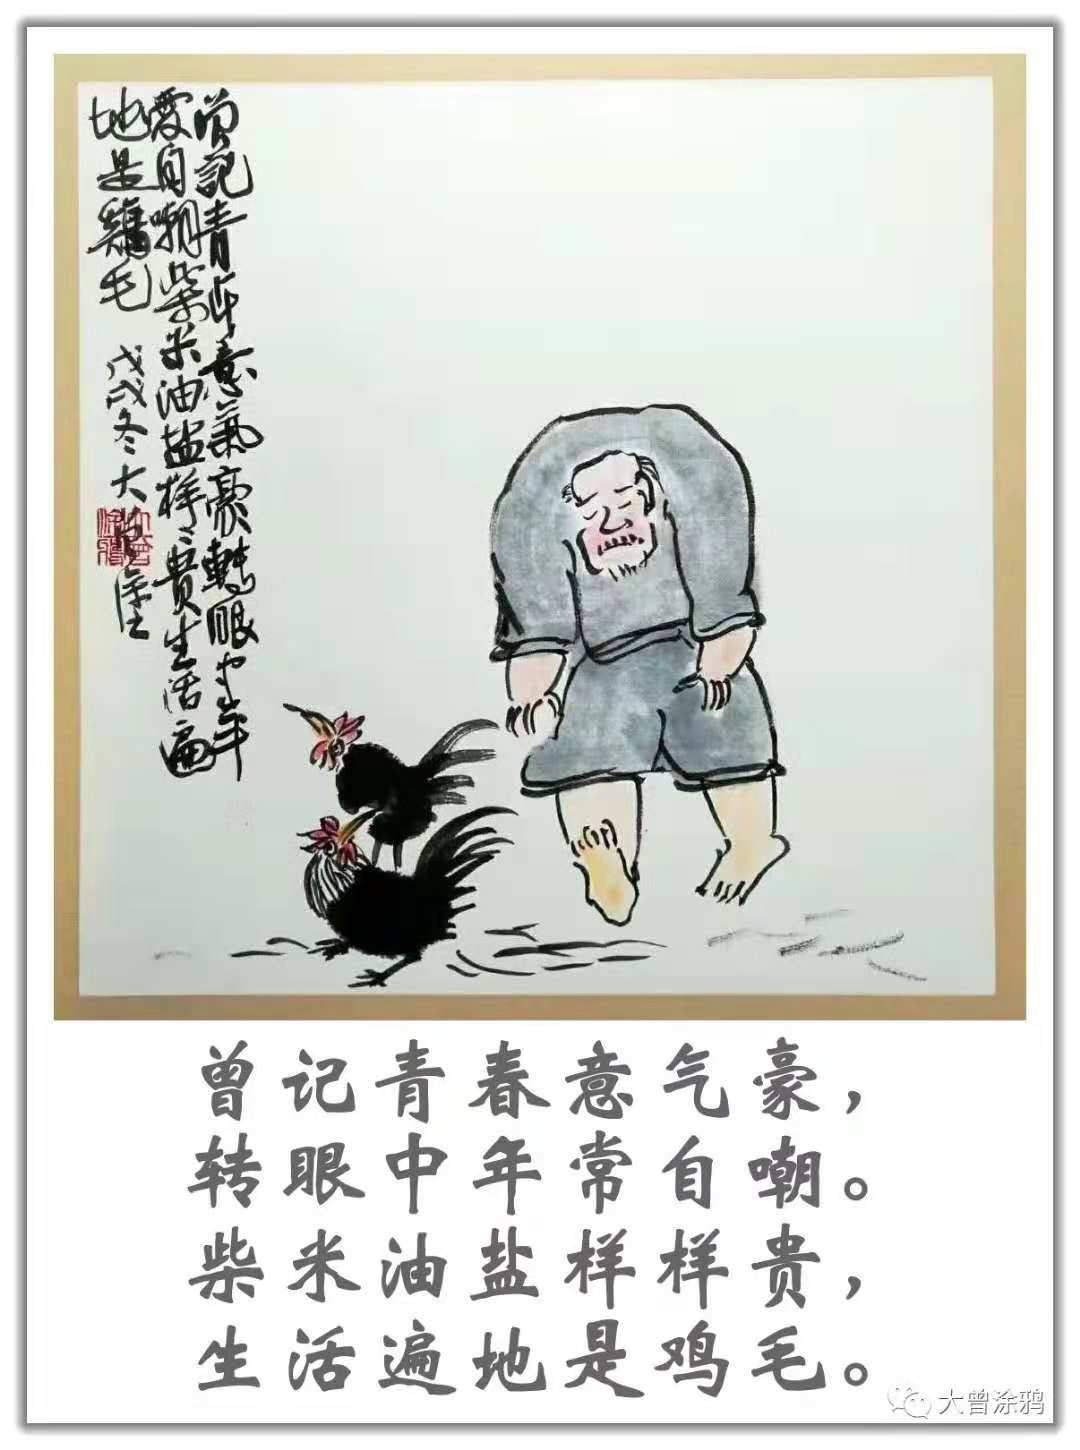 曾記青年意氣豪轉眼中年
愛自嘲柴米油盐样々貴生活遍
地是鷄毛
戊戌冬大曾塗
曾记青春意气豪，
转眼中年常自嘲。
柴米油盐样样贵，
生活遍地是鸡毛。
大曾涂鸦